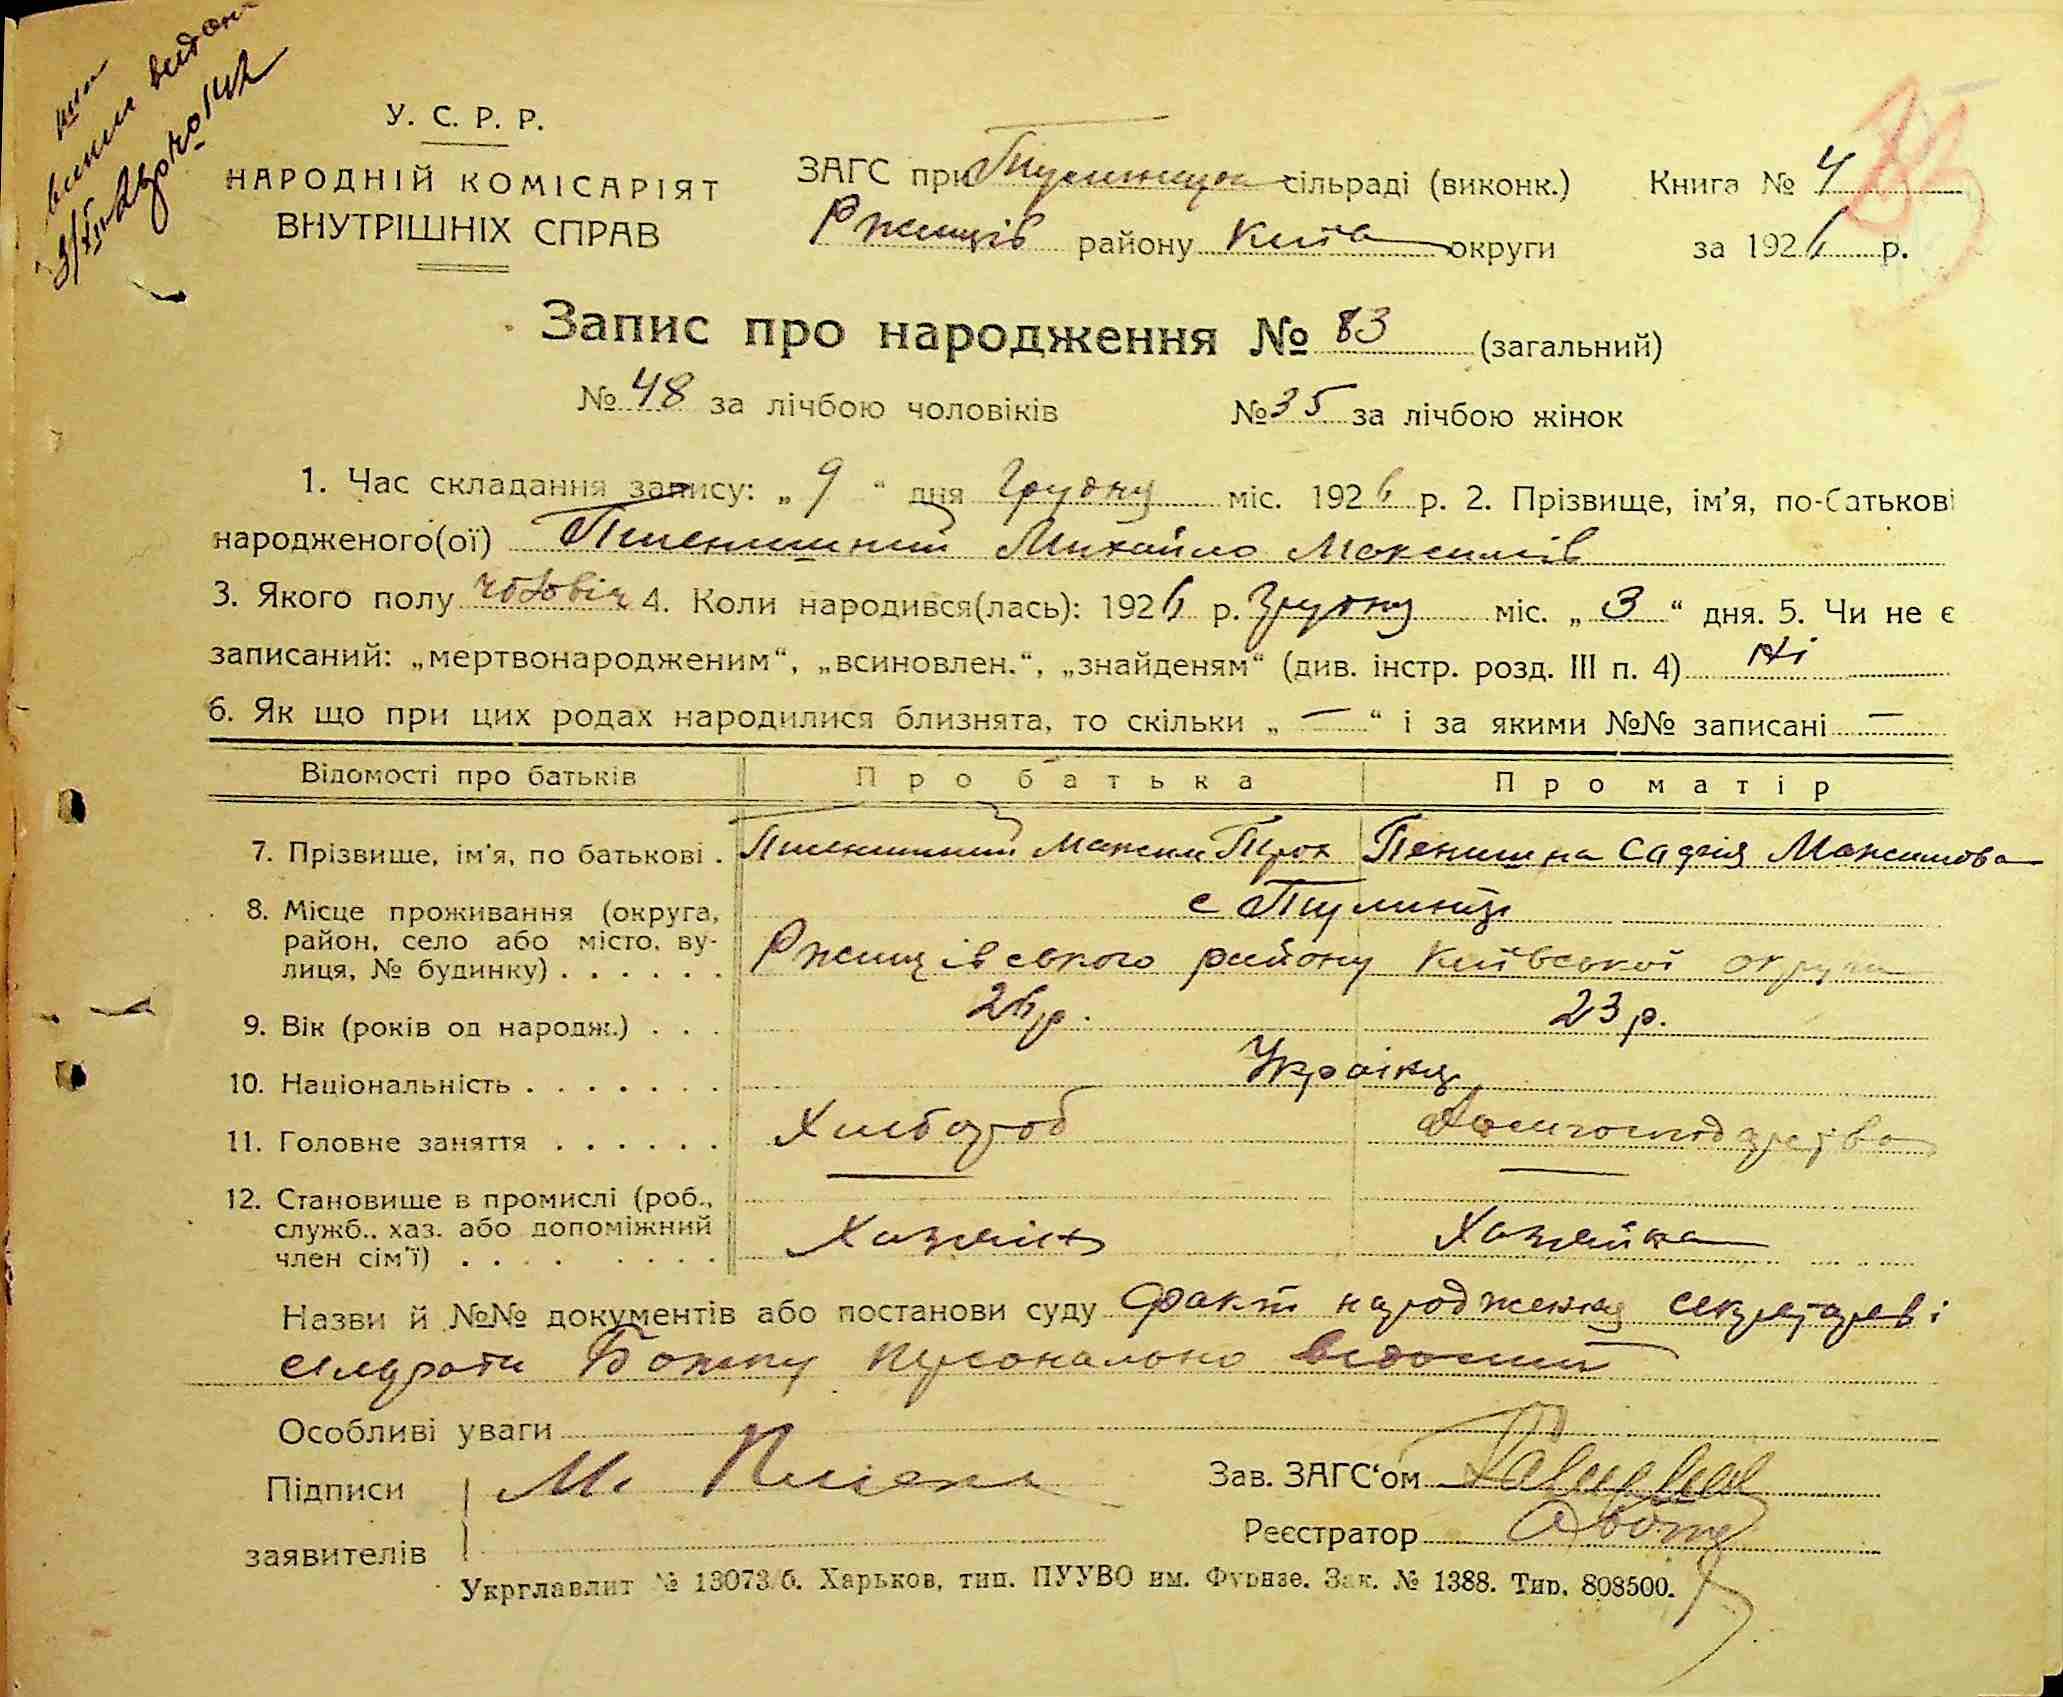 виписи видано
У. С. Р. Р.
НАРОДНІЙ КОМІСАРІЯТ
ВНУТРІШНІХ СПРАВ
ЗАГС при Тулинецк сільраді (виконк.)
Ржищів району Київ округи
Книга № 4
за 1926 р.
83
Запис про народження № 83 (загальний)
№ 48 за лічбою чоловіків № 35 за лічбою жінок
1. Час складання запису: „ 9 “ дня Грудня міс. 1926 р. 2. Прізвище, ім'я, по-батькові
народженого(ої) Пшенишний Михайло Максимів
3. Якого полу чоловіч 4. Коли народився(лась): 1926 р. Грудня міс. „ 3 “ дня. 5. Чи не є
записаний: „мертвонародженим“, „всиновлен.“, „знайденям“ (див. інстр. розд. III п. 4) Ні
6. Як що при цих родах народилися близнята, то скільки „ — “ і за якими №№ записані —
Відомості про батьків Про батька Про матір
7. Прізвище, ім'я, по батькові . Пшенишний Максим Трох Пениш на Софія Максимова
8. Місце проживання (округа, с Тулинці
район, село або місто, ву- Ржищівського району Київської округи
лиця, № будинку) . . . . . .
9. Вік (років од народж.) . . . 26 р. 23 р.
10. Національність . . . . . . . Українці
11. Головне заняття . . . . . . Хлібороб Домгосподарства
12. Становище в промислі (роб.,
служб., хаз. або допоміжний Хазяїн Хазяйка
член сім'ї) . . . . . . . .
Назви й №№ документів або постанови суду Факт народження секретареві
сільради Божку персонально відомий
Особливі уваги
Підписи М. Пшен
заявителів
Зав. ЗАГС‘ом
Реєстратор
Укрглавлит № 13073/б. Харьков, тип. ПУУВО им. Фрунзе. Зак. № 1388. Тир. 808500.